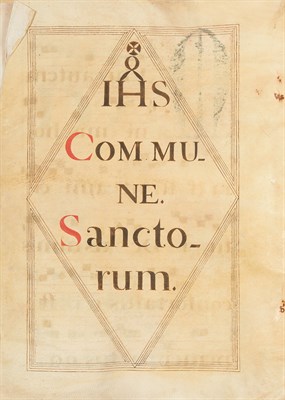 IHS
COMMU-
NE.
Sancto-
rum.